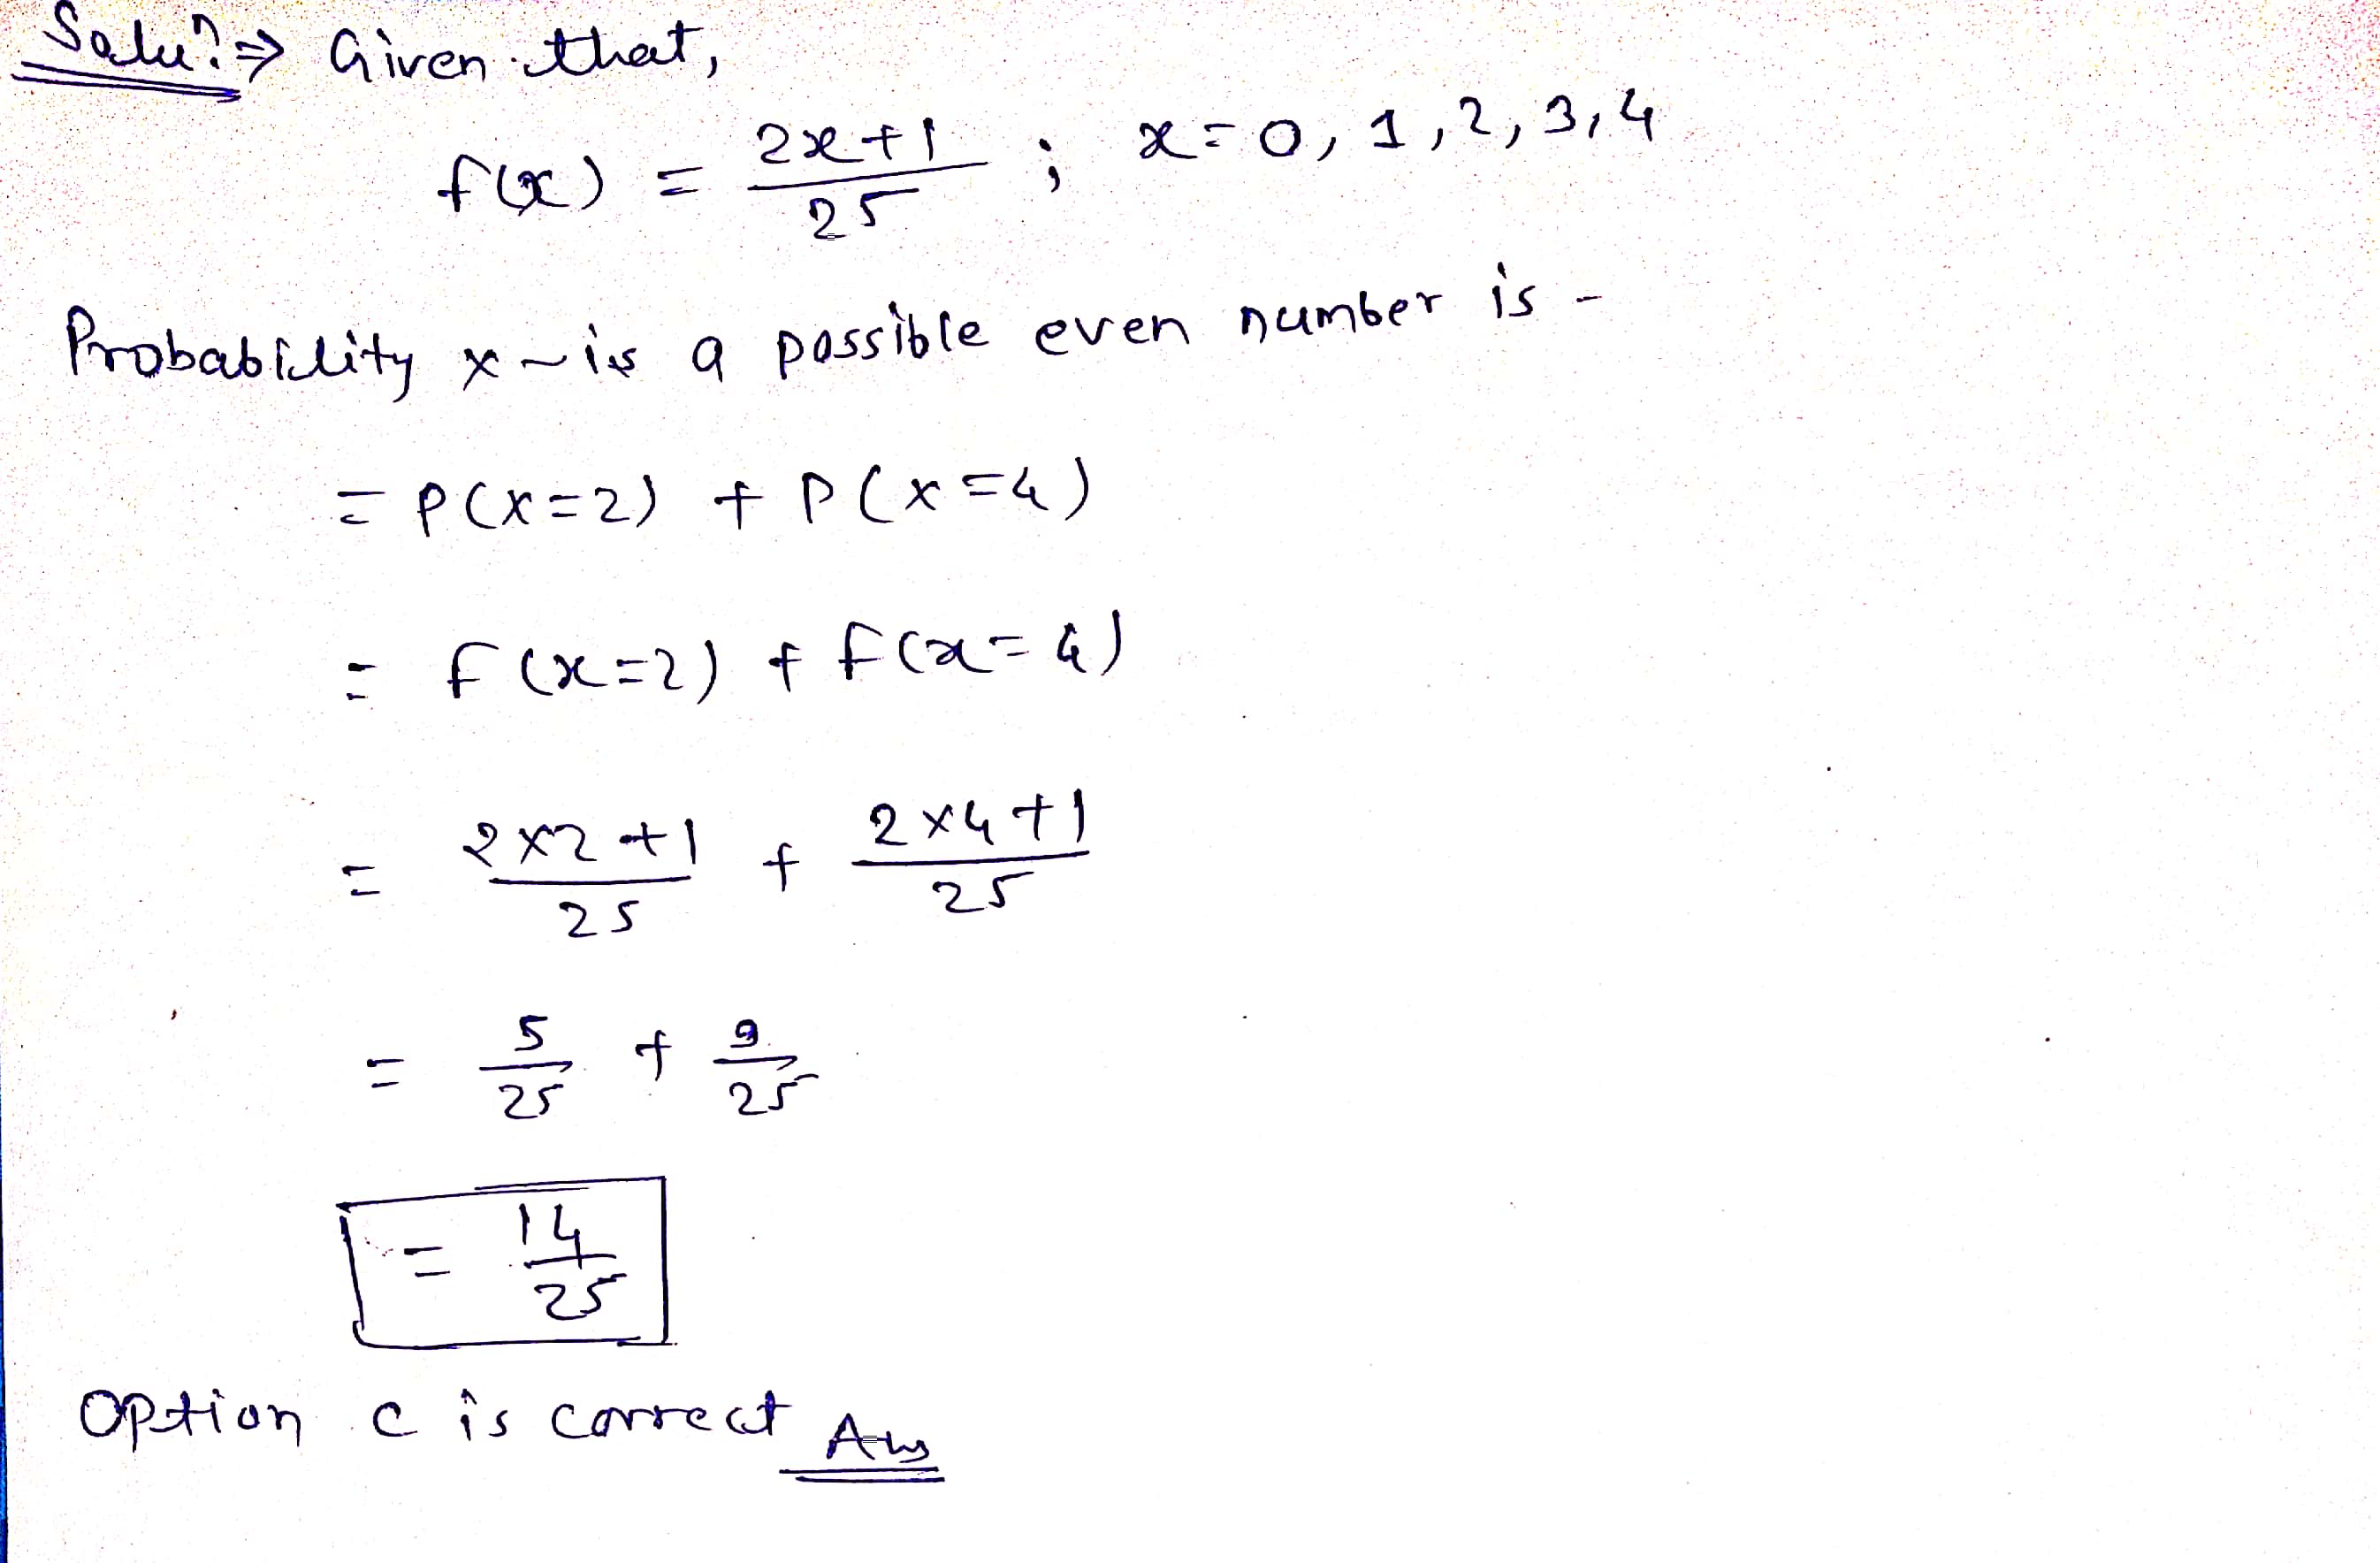 Solun ⇒ Given that,
f(x) = 2x+1/25 ; x=0, 1, 2, 3, 4
Probability x ~ is a possible even number is -
= P(X=2) + P(X=4)
= f(x=2) + f(x=4)
= 2×2+1/25 + 2×4+1/25
= 5/25 + 9/25
= 14/25
Option c is correct Ans